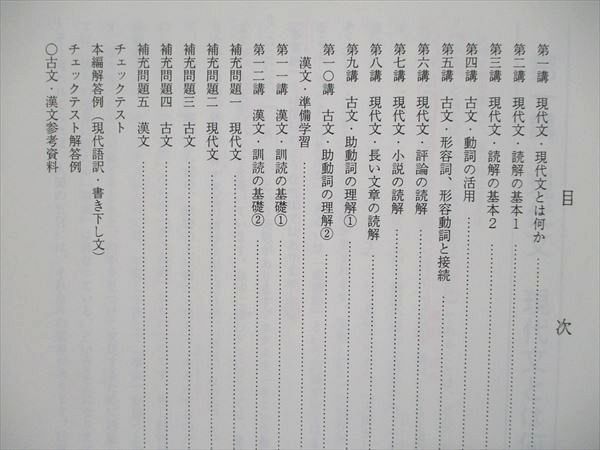 目次
第一講 現代文・現代文とは何か
第二講 現代文・読解の基本1
第三講 現代文・読解の基本2
第四講 古文・動詞の活用
第五講 古文・形容詞、形容動詞と接続
第六講 現代文・評論の読解
第七講 現代文・小説の読解
第八講 現代文・長い文章の読解
第九講 古文・助動詞の理解①
第一〇講 古文・助動詞の理解②
漢文・準備学習
第一一講 漢文・訓読の基礎①
第一二講 漢文・訓読の基礎②
補充問題一 現代文
補充問題二 現代文
補充問題三 古文
補充問題四 古文
補充問題五 漢文
チェックテスト
本編解答例（現代語訳・書き下し文）
チェックテスト解答例
〇古文・漢文参考資料